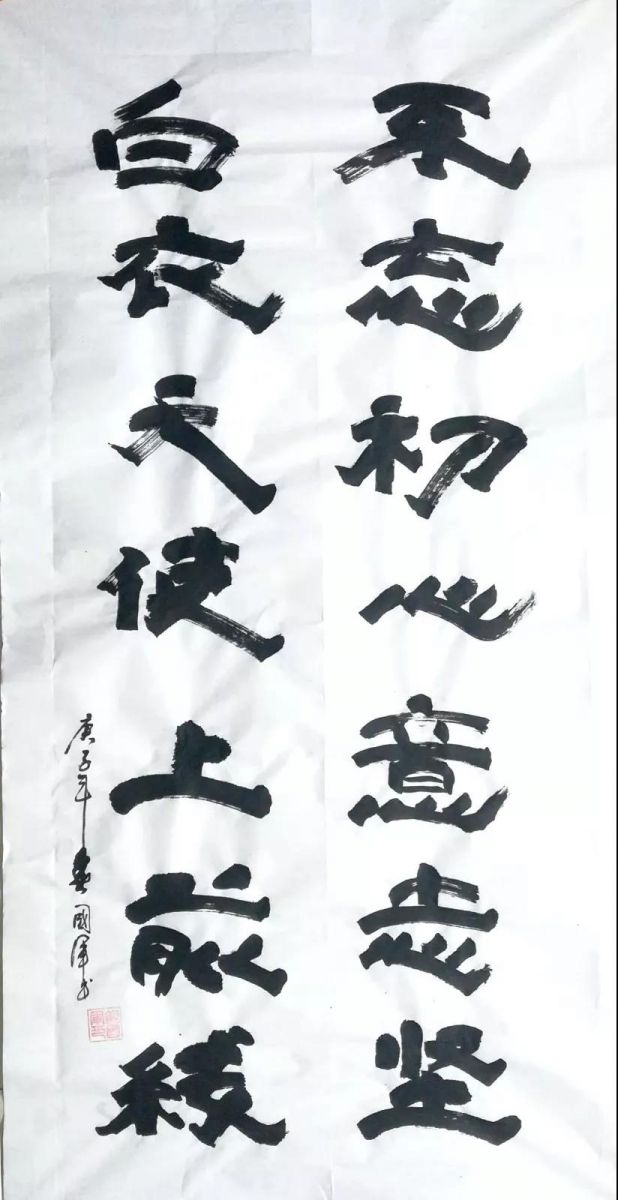 不忘初心意志坚
白衣天使上前线
庚子年 国军书